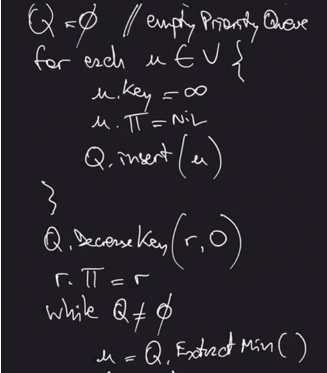 Q = ∅ // empty Priority Queue
for each u ∈ V {
u.key = ∞
u.π = NiL
Q.insert(u)
}
Q.DecreaseKey(r,0)
r.π = r
while Q ≠ ∅
u = Q.ExtractMin()